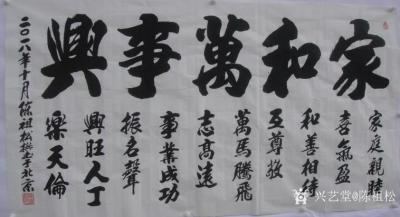 家和萬事興
家庭親情
喜氣盈
和善相待
互尊敬
萬馬騰飛
志高遠
事業成功
振名聲
興旺人丁
樂天倫
二〇一八年十月徐祖松撰書北京
兴艺堂@陈祖松